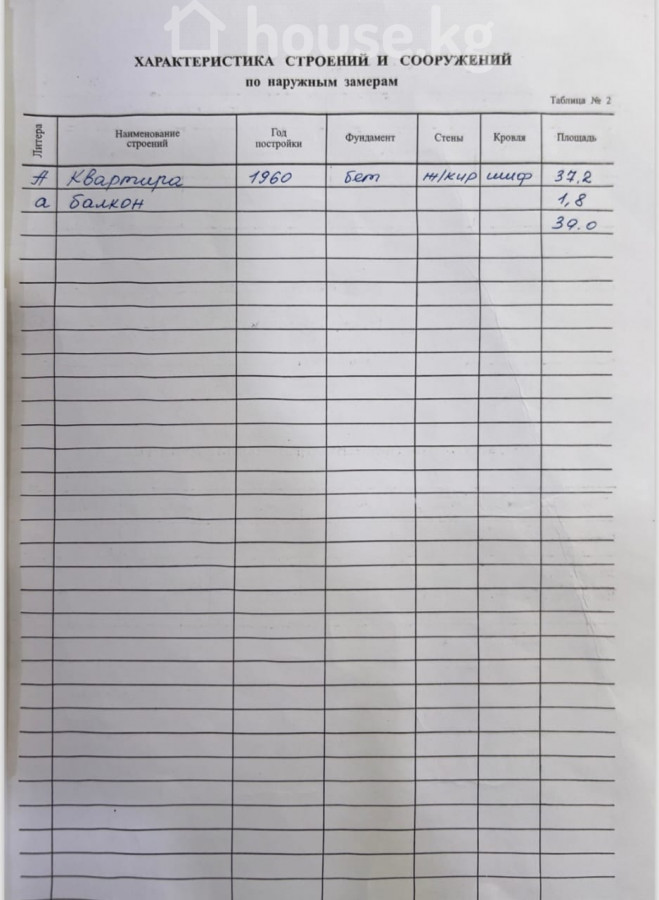 house.kg
ХАРАКТЕРИСТИКА СТРОЕНИЙ И СООРУЖЕНИЙ
по наружным замерам
Таблица № 2
Литера Наименование строений Год постройки Фундамент Стены Кровля Площадь
А Квартира 1960 бет ж/кир шиф 37,2
а балкон 1,8
39.0